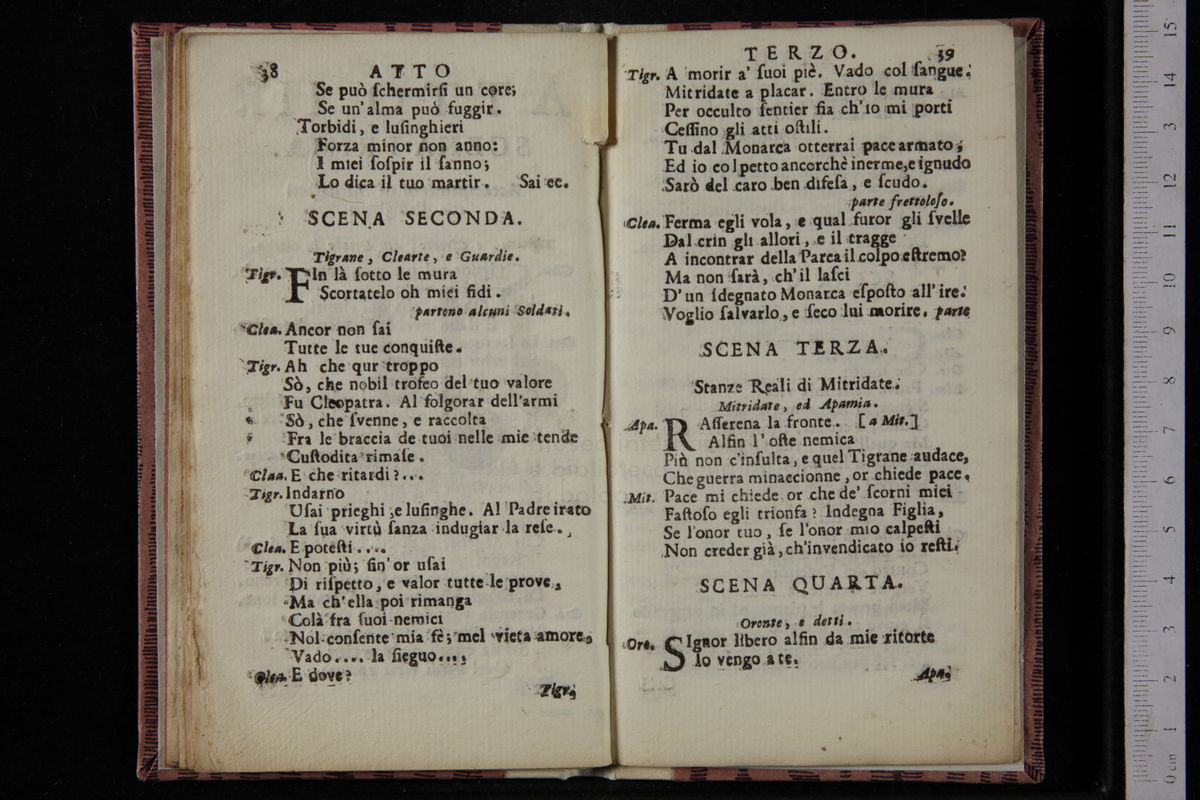 38 ATTO
Se può ſchermirſi un core;
Se un'alma può fuggir.
Torbidi, e luſinghieri
Forza minor non anno:
I miei ſoſpir il ſanno;
Lo dica il tuo martir. Sai ec.
SCENA SECONDA.
Tigrane, Clearte, e Guardie.
Tigr. FIn là ſotto le mura
Scortatelo oh miei fidi.
partono alcuni Soldati.
Clea. Ancor non ſai
Tutte le tue conquiſte.
Tigr. Ah che qur troppo
Sò, che nobil trofeo del tuo valore
Fu Cleopatra. Al folgorar dell'armi
Sò, che ſvenne, e raccolta
Fra le braccia de tuoi nelle mie tende
Cuſtodita rimaſe.
Claa. E che ritardi?...
Tigr. Indarno
Uſai prieghi, e luſinghe. Al Padre irato
La ſua virtù ſanza indugiar la reſe..
Clea. E poteſti....
Tigr. Non più; ſin'or uſai
Di riſpetto, e valor tutte le prove,
Ma ch'ella poi rimanga
Colà fra ſuoi nemici
Nol conſente mia fè; mel vieta amore,
Vado.... la ſieguo....
Clea. E dove?
Tigr.
TERZO. 39
Tigr. A morir a' ſuoi piè. Vado col ſangue.
Mitridate a placar. Entro le mura
Per occulto ſentier fia ch'io mi porti
Ceſſino gli atti oſtili.
Tu dal Monarca otterrai pace armato;
Ed io col petto ancorchè inerme, e ignudo
Sarò del caro ben difeſa, e ſcudo.
parte frettoloſo.
Clea. Ferma egli vola, e qual furor gli ſvelle
Dal crin gli allori, e il tragge
A incontrar della Parca il colpo eſtremo?
Ma non ſarà, ch'il laſci
D'un ſdegnato Monarca eſpoſto all'ire.
Voglio ſalvarlo, e ſeco lui morire. parte
SCENA TERZA.
Stanze Reali di Mitridate.
Mitridate, ed Apamia.
Apa. RAſſerena la fronte. [a Mit.]
Alfin l'oſte nemica
Più non c'inſulta, e quel Tigrane audace,
Che guerra minaccionne, or chiede pace.
Mit. Pace mi chiede or che de' ſcorni miei
Faſtoſo egli trionfa? Indegna Figlia,
Se l'onor tuo, ſe l'onor mio calpeſti
Non creder già, ch'invendicato io reſti.
SCENA QUARTA.
Oronte, e detti.
Oro. SIgnor libero alfin da mie ritorte
Io vengo a te.
Apa.